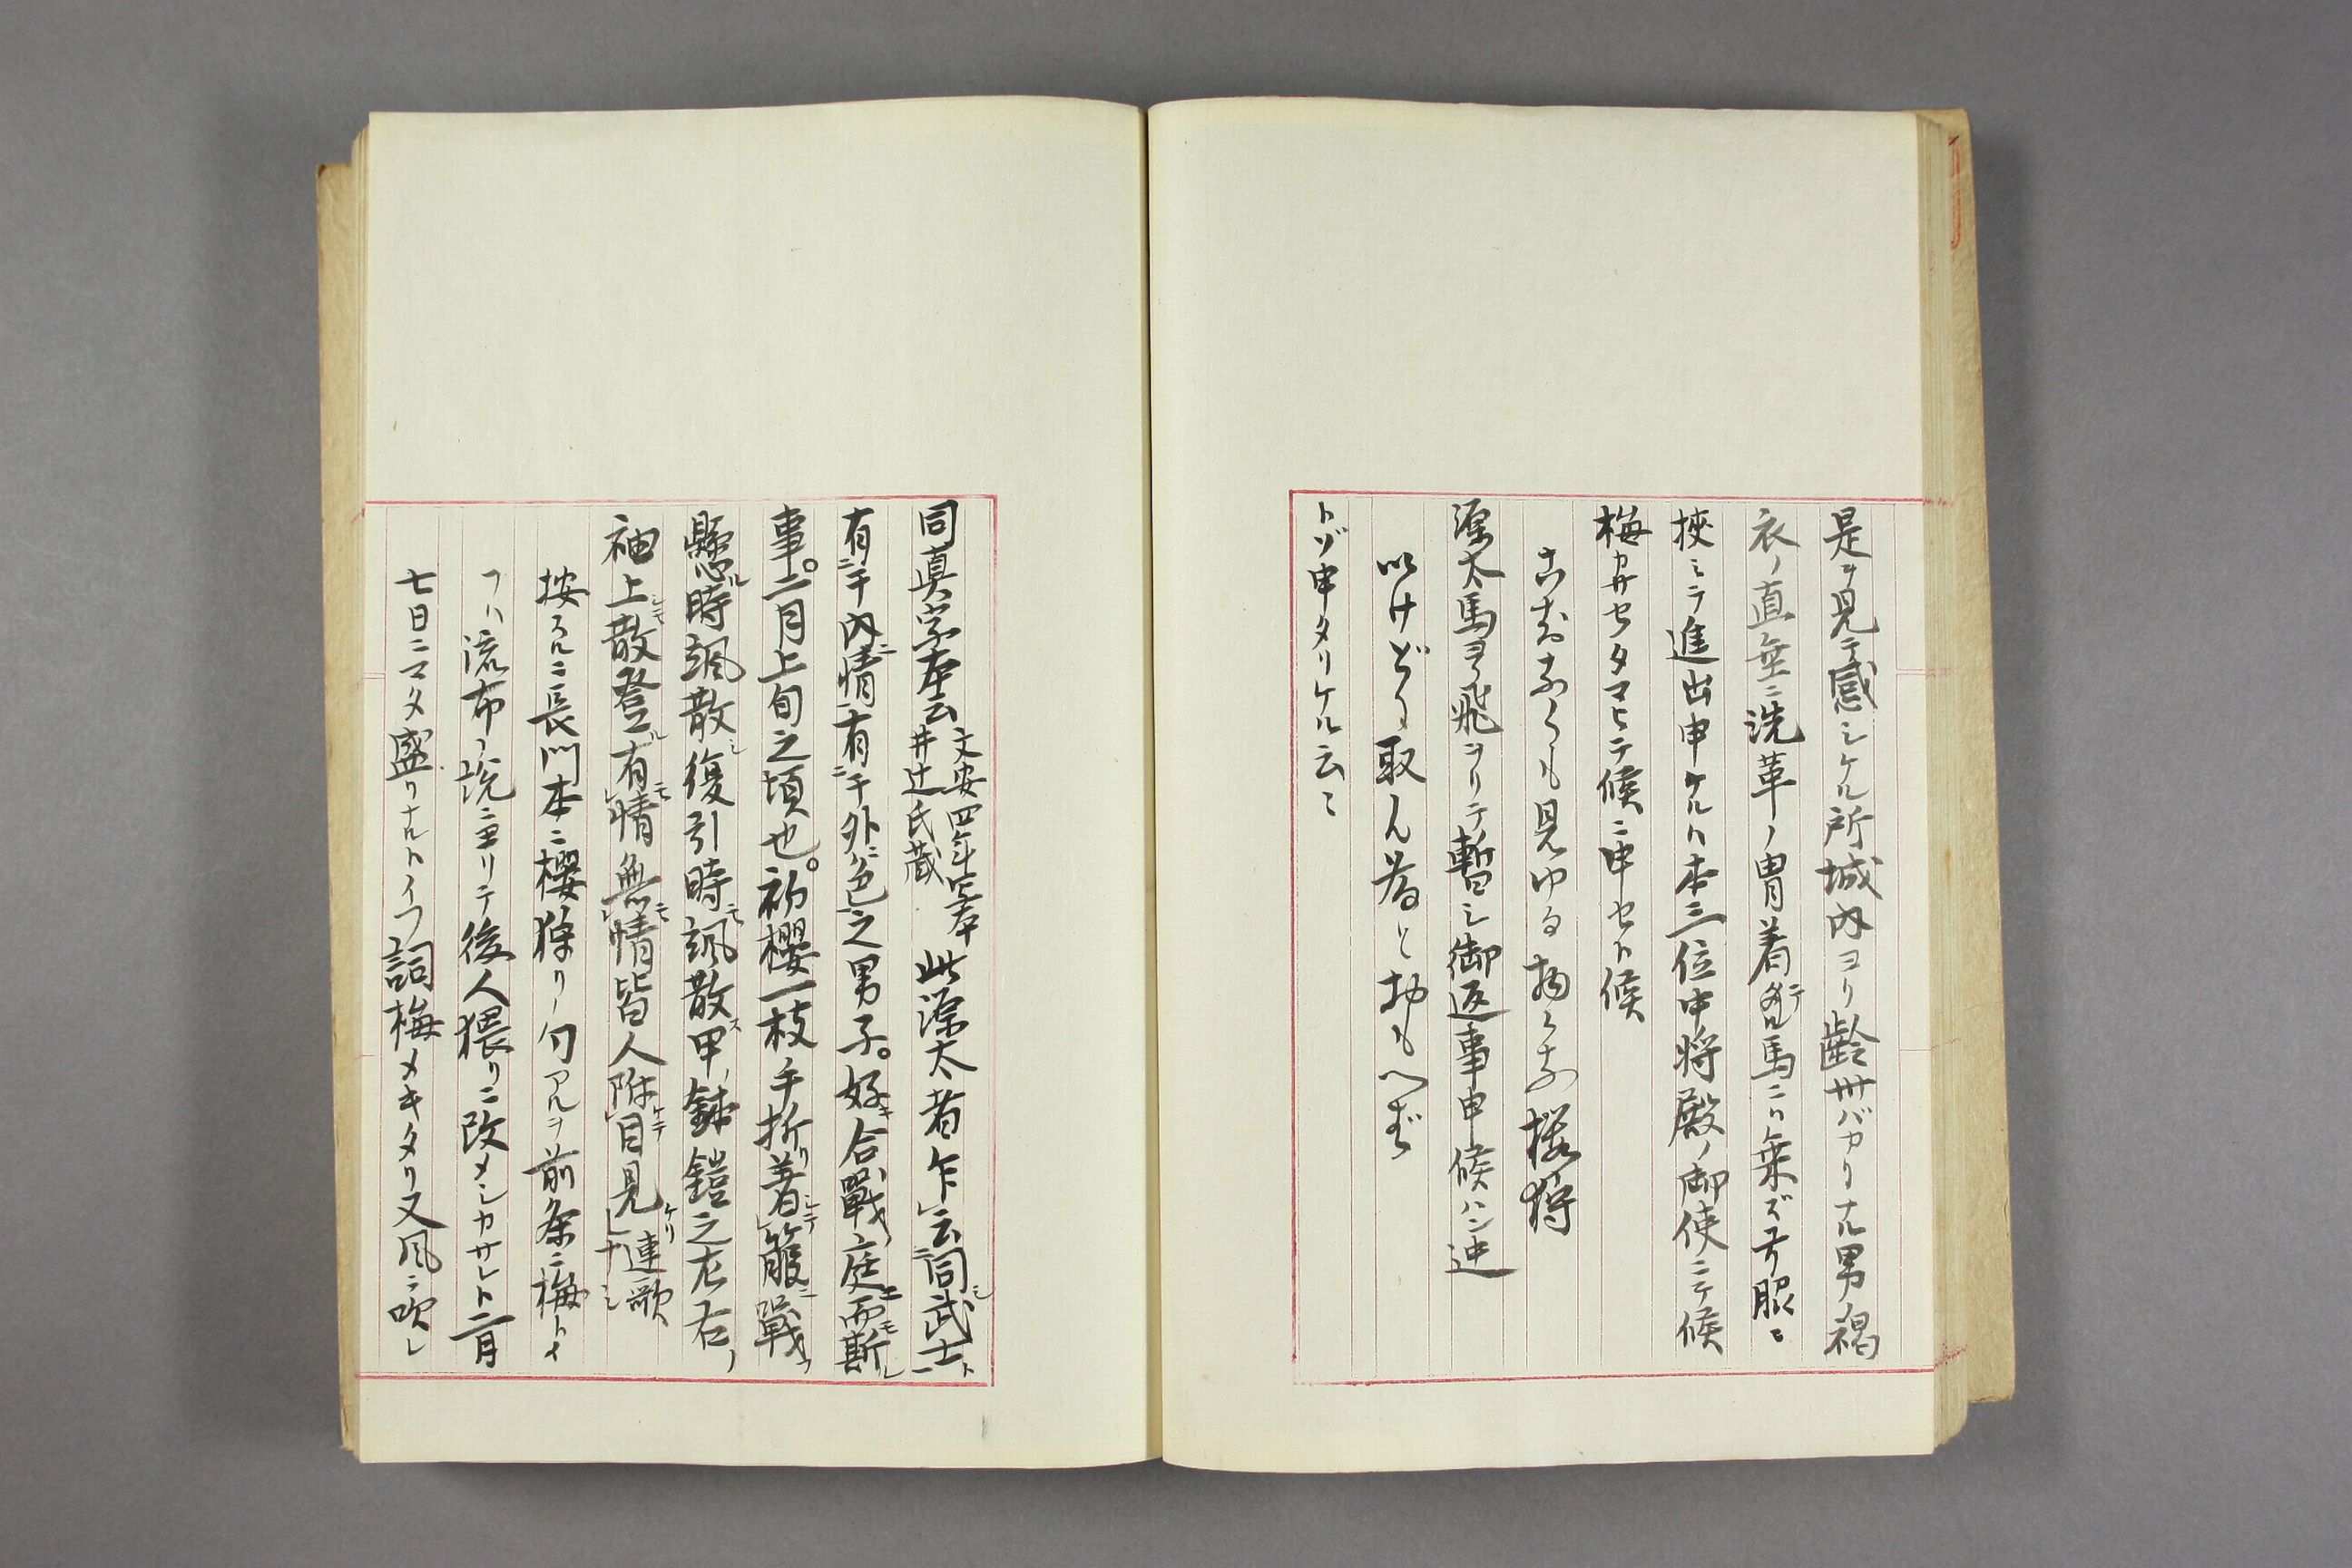 是ヲ見テ感シケル所城内ヨリ齢卅バカリナル男褐
衣ノ直垂ニ洗革ノ冑着テ馬ニハ乗ズ弓脇ニ
挾ミテ進出申ケルハ本三位中将殿ノ御使ニテ候
梅カザセタマヒテ候ニ申セト候
こちなくも見ゆる物かな桜狩
源太馬ヨリ飛ヲリテ暫シ御返事申候ハン迚
いけどり取ん為と おもへば
トゾ申タリケル云々
同真字本云 文安四年写本
井辻氏蔵 此源太者乍云同武士
有干内情有干外色之男子。好合戰庭而斯
事。二月上旬之頃也。初櫻一枝手折着箙戰
懸時颯散復引時颯散甲鉢鎧之左右
袖上散登有情無情皆人附目見連歌
按スルニ長門本ニ櫻狩リノ句アルヲ前条ニ梅トイ
フハ流布ノ説ニヨリテ後人猥リニ改メシカサレト二月
七日ニマタ盛リナルトイフ詞梅メキタリ又風ニ吹レ